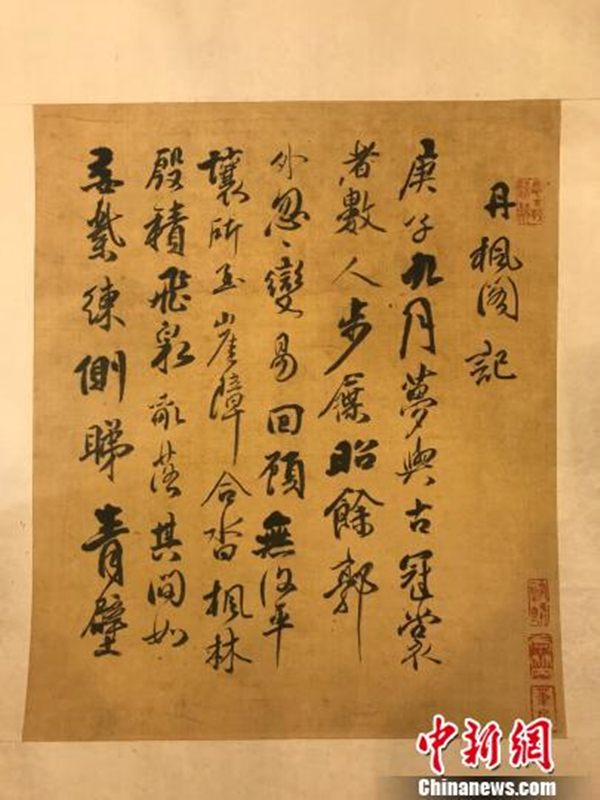 丹楓閣記
庚子九月夢與古冠裳
者數人步屧昭餘郭
外忽〻變易回顧無復平
壤所至崖障合沓楓林
殷積飛泉亂落其間如
縈練側睇青壁
中新網
Chinanews.com